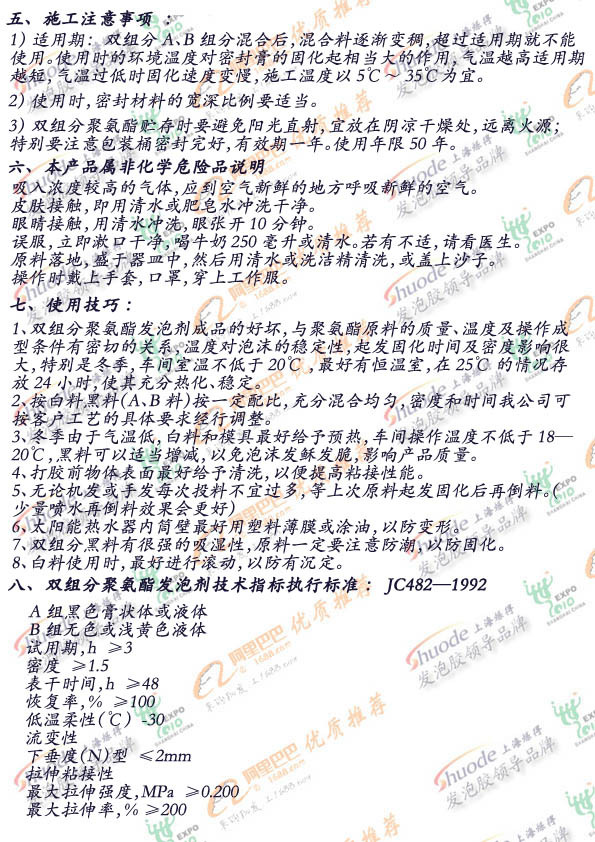 五、施工注意事项 :
1) 适用期: 双组分A、B组分混合后,混合料逐渐变稠,超过适用期就不能
使用。使用时的环境温度对密封膏的固化起相当大的作用,气温越高适用期
越短,气温过低时固化速度变慢,施工温度以5℃~35℃为宜。
2) 使用时,密封材料的宽深比例要适当。
3) 双组分聚氨酯贮存时要避免阳光直射,宜放在阴凉干燥处,远离火源;
特别要注意包装桶密封完好,有效期一年。使用年限50年。
六、本产品属非化学危险品说明
吸入浓度较高的气体,应到空气新鲜的地方呼吸新鲜的空气。
皮肤接触,即用清水或肥皂水冲洗干净。
眼睛接触,用清水冲洗,眼张开10分钟。
误服,立即漱口干净,喝牛奶250毫升或清水。若有不适,请看医生。
原料落地,盛于器皿中,然后用清水或洗洁精清洗,或盖上沙子。
操作时戴上手套,口罩,穿上工作服。
七、使用技巧:
1、双组分聚氨酯发泡剂成品的好坏,与聚氨酯原料的质量、温度及操作成
型条件有密切的关系,温度对泡沫的稳定性,起发固化时间及密度影响很
大,特别是冬季,车间室温不低于20℃,最好有恒温室,在25℃的情况存
放24小时,使其充分热化、稳定。
2、按白料黑料(A、B料)按一定配比,充分混合均匀,密度和时间我公司可
按客户工艺的具体要求经行调整。
3、冬季由于气温低,白料和模具最好给予预热,车间操作温度不低于18—
20℃,黑料可以适当增减,以免泡沫发酥发脆,影响产品质量。
4、打胶前物体表面最好给予清洗,以便提高粘接性能。
5、无论机发或手发每次投料不宜过多,等上次原料起发固化后再倒料。(
少量喷水再倒料效果会更好)
6、太阳能热水器内筒壁最好用塑料薄膜或涂油,以防变形。
7、双组分黑料有很强的吸湿性,原料一定要注意防潮,以防固化。
8、白料使用时,最好进行滚动,以防有沉定。
八、双组分聚氨酯发泡剂技术指标执行标准: JC482—1992
A组黑色膏状体或液体
B组无色或浅黄色液体
试用期,h ≥3
密度 ≥1.5
表干时间,h ≥48
恢复率,% ≥100
低温柔性(℃) -30
流变性
下垂度(N)型 ≤2mm
拉伸粘接性
最大拉伸强度,MPa ≥0.200
最大拉伸率,% ≥200